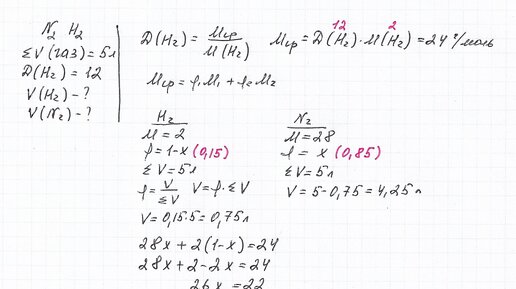 N₂ H₂
ΣV(газ)=5л
D(H₂)=12
V(H₂)-?
V(N₂)-?
D(H₂)=Mср/M(H₂) Mср=D(H₂)·M(H₂)=24 г/моль
12 2
Mср=φ₁M₁+φ₂M₂
H₂
M=2
φ=1-x (0,15)
ΣV=5л
φ=V/ΣV V=φ·ΣV
V=0,15·5=0,75л
N₂
M=28
φ=x (0,85)
ΣV=5л
V=5-0,75=4,25л
28x+2(1-x)=24
28x+2-2x=24
26x=22